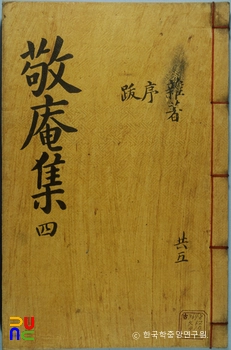 敬庵集
四
雜著
序
跋
共五
© 한국학중앙연구원